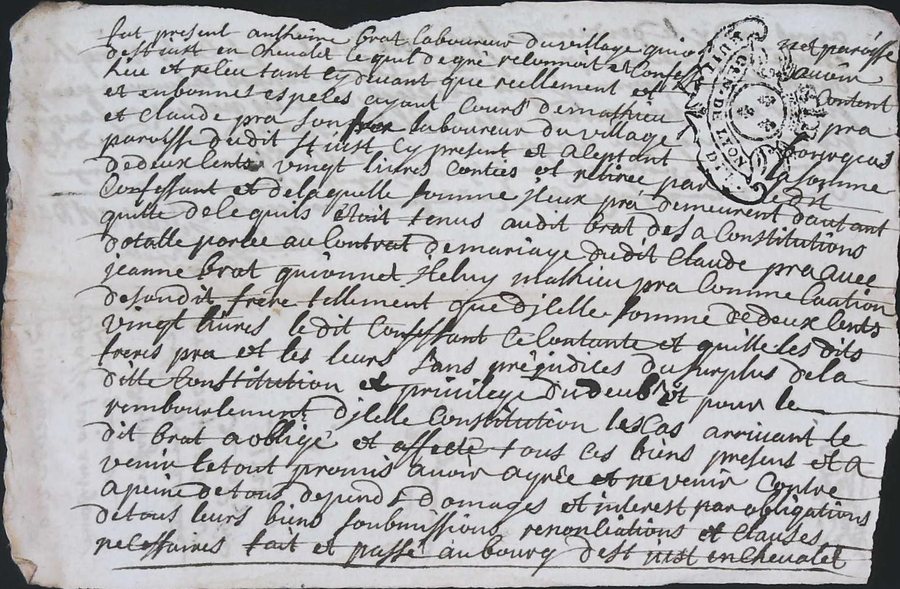 fut present antheime brat laboureur du village quio net paroisse
de st iust en chevalet lequel de gré reconnoit et Confesse avoir
heu et releu tant cy devant que reellement et Content
et en bonnes espeles ayant Cours de mathieu pra
et Claude pra son laboureur du village
paroisse dudit st iust Cy present et aleptant la somme
de deux lents vingt livres Contées et retirée par ledit
Confessant et de laquelle somme iceux pra demeurent dautant
quitte de lequils était tenus audit brat de sa Constitutions
dotalle portée au Contrat de mariage dudit Claude pra avec
jeanne brat quionnet iteluy mathieu pra Comme Caution
de son dit frere tellement que dicelle somme de deux lents
vingt livres ledit Confessant ce Contante et quitte les dits
freres pra et les leurs sans préjudices du surplus de la
ditte Constitution et privilege dudeub et pour le
remboursement dicelle Constitution les Cas arrivant le
dit brat a obligé et affecté tous ces biens presens et a
venir le tout promis avoir agrée et ne venir Contre
a peine de tous depends domages et interest par obligations
de tous leurs biens soubmissions renonciations et Clauses
nelessaires fait et passé au bourg de st iust en chevalet